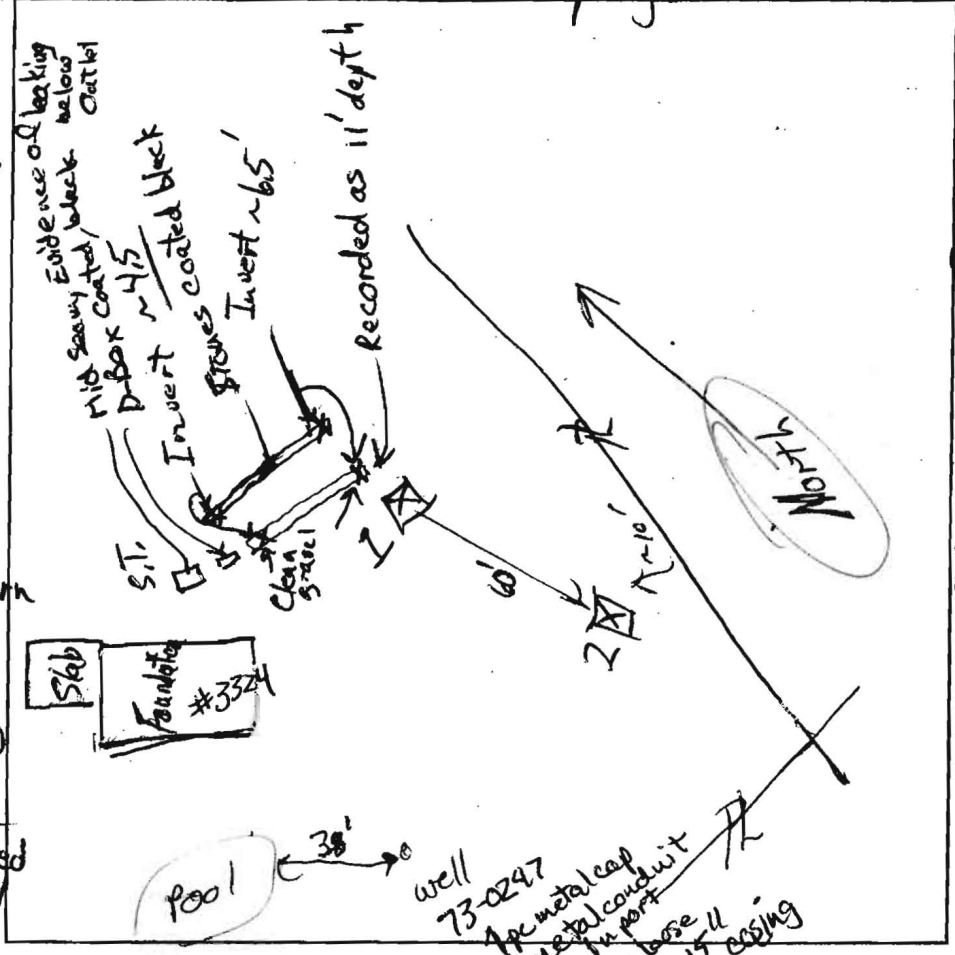 Evidence of leaking
below
outlet
Mid seam coated/black
D-Box coated/
Invert ~4.5
Stones coated black
Invert ~6.5'
Recorded as 11' depth
S.T.
Clean
gravel
1
60'
2
~10'
North
Slab
Foundation
#3324
Pool
38'
well
73-0247
1pc metal cap
metal conduit
in port
loose
15" casing
PL